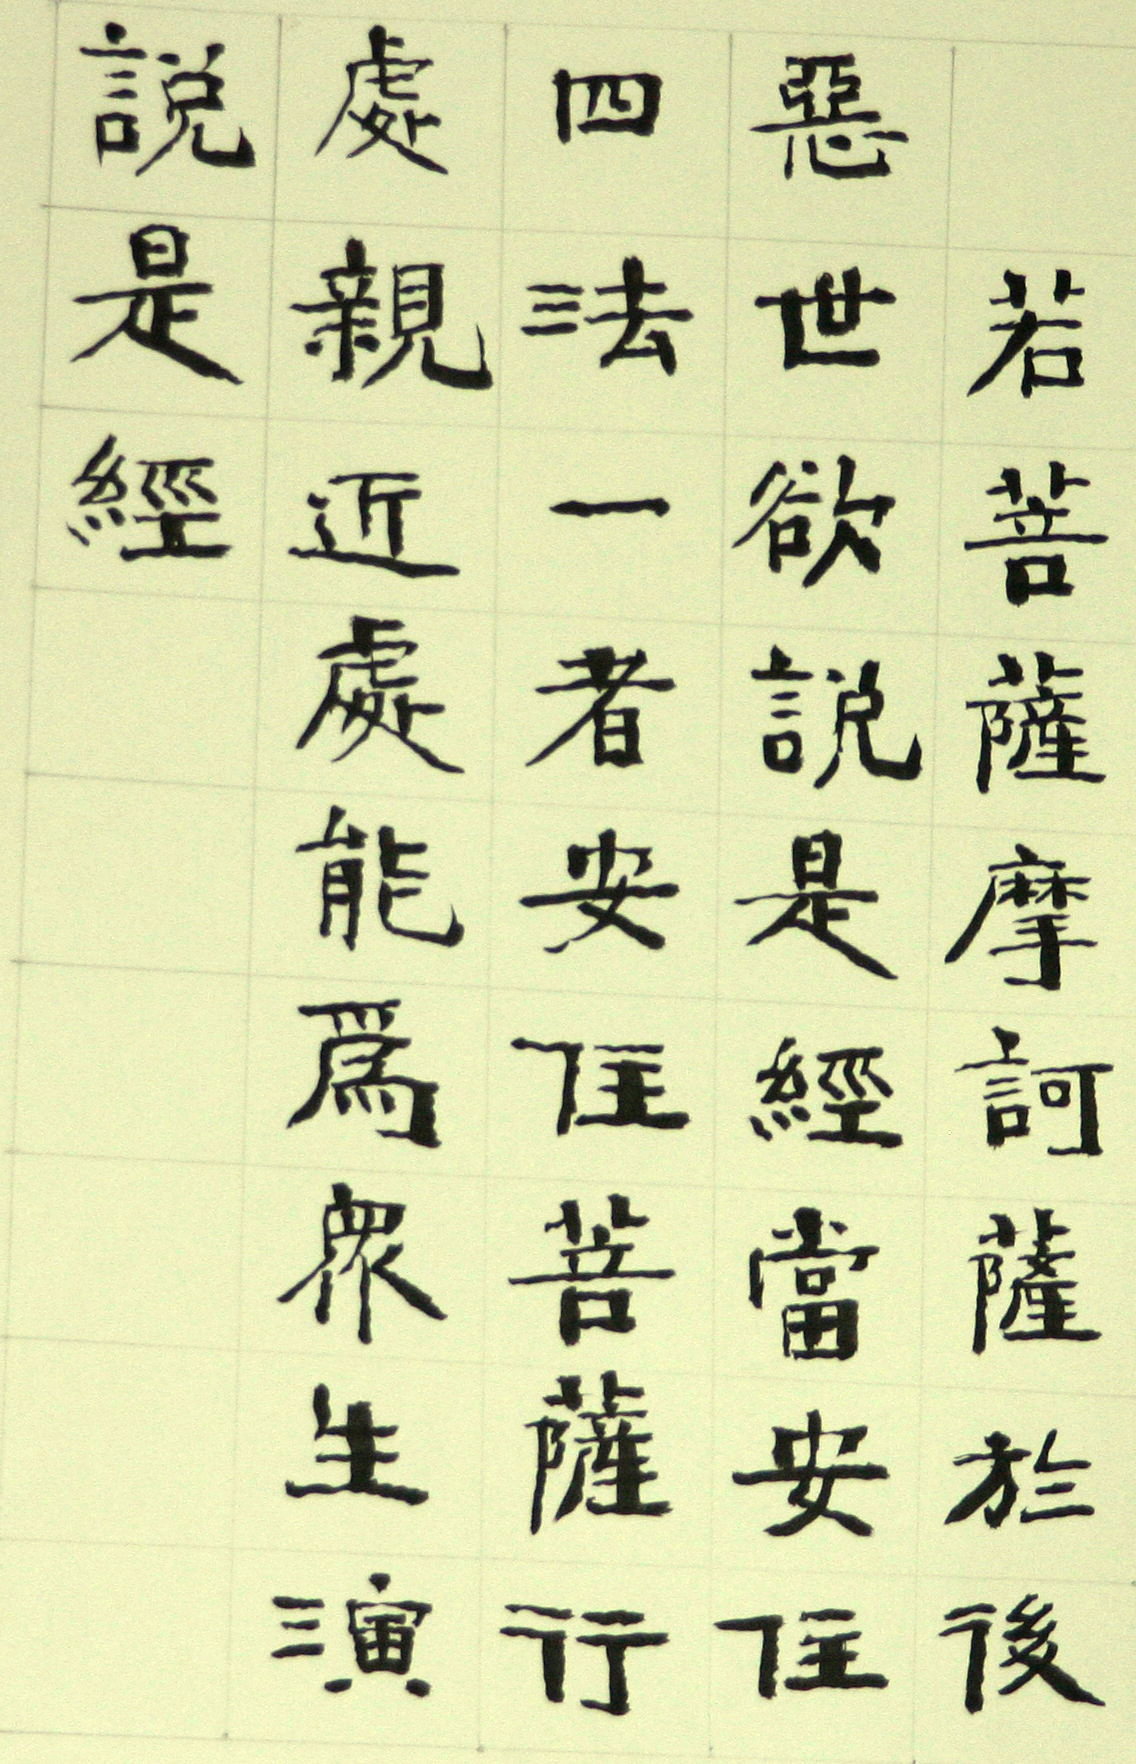 若菩薩摩訶薩於後
惡世欲說是經當安住
四法一者安住菩薩行
處親近處能爲眾生演
說是經